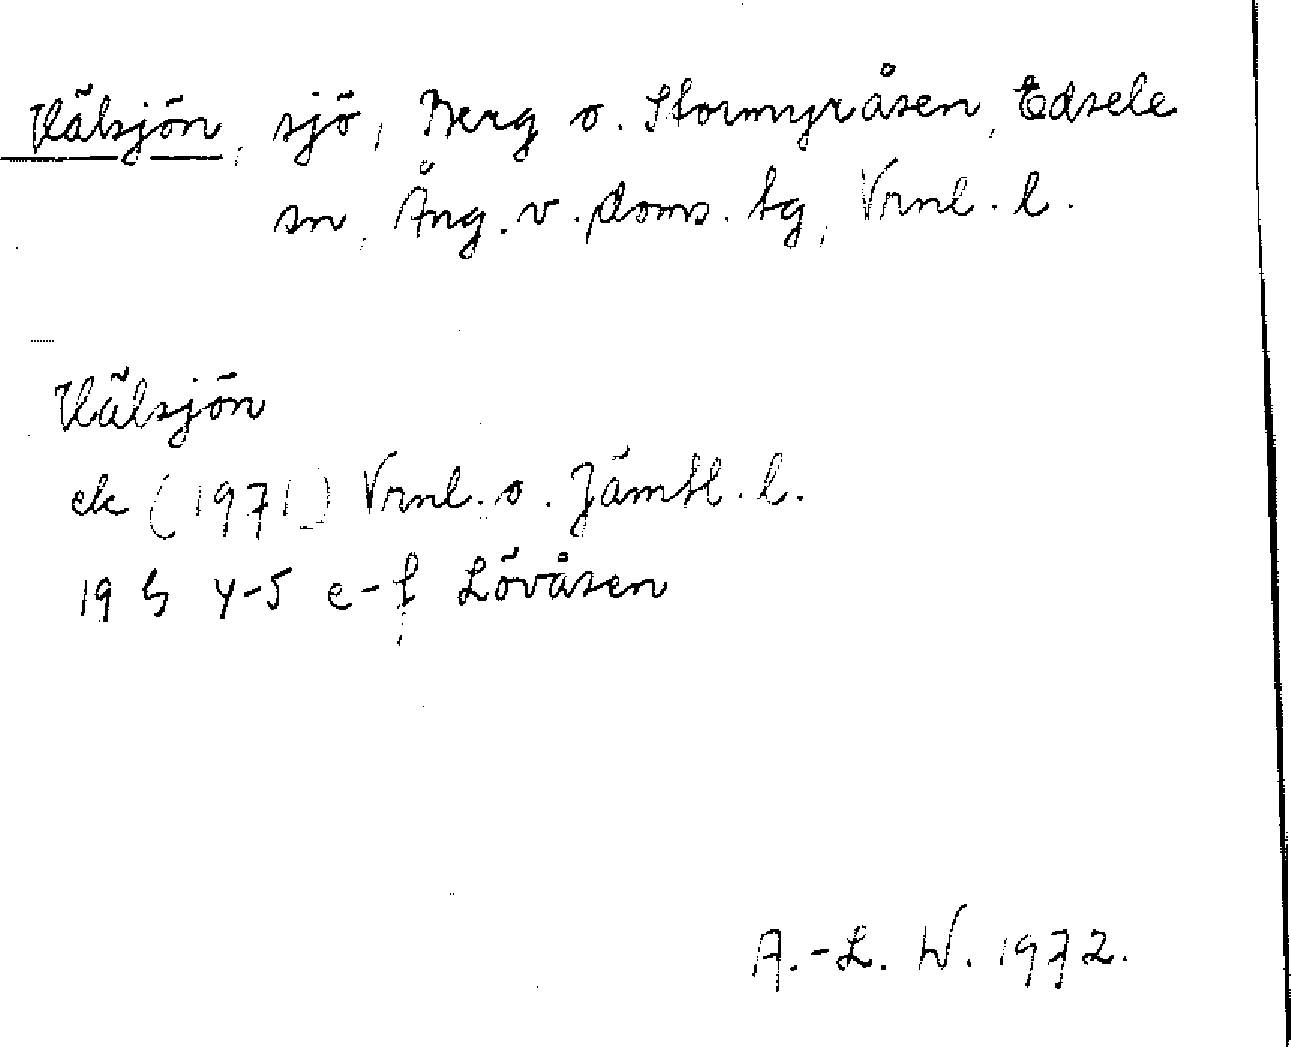 Välsjön, sjö, Berg o. Stormyråsen, Edsele
sn, Ång. v. doms. tg, Vrnl. l.
Välsjön
ek (1971) Vrnl. o. Jämtl. l.
19 G 4-5 e-f Lövåsen
A.-L. W. 1972.